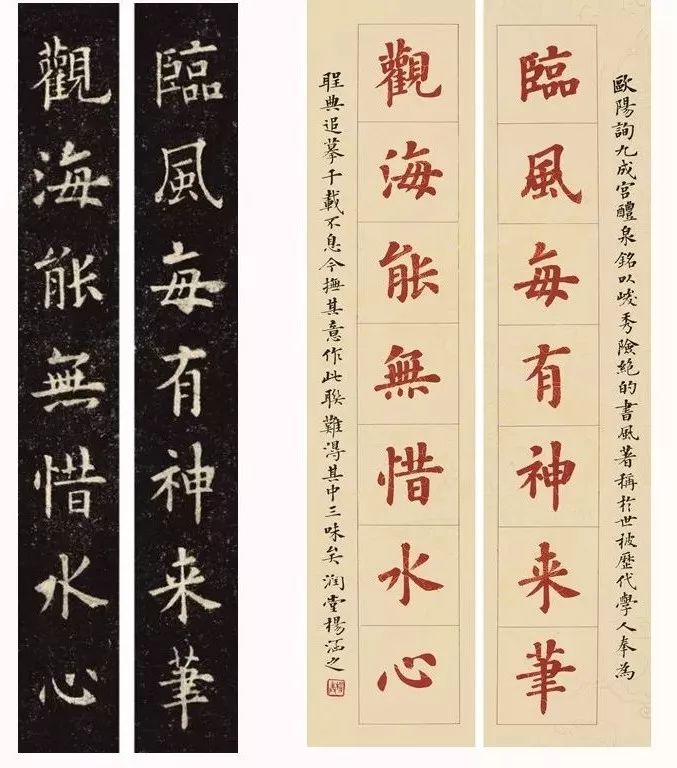 歐陽詢九成宮醴泉銘以峻秀險絕的書風著稱於世被歷代學人奉為
臨風每有神来筆
觀海能無惜水心
聖典追摹千載不息今撫其意作此聯難得其中三味矣 润堂楊涵之
臨風每有神来筆
觀海能無惜水心